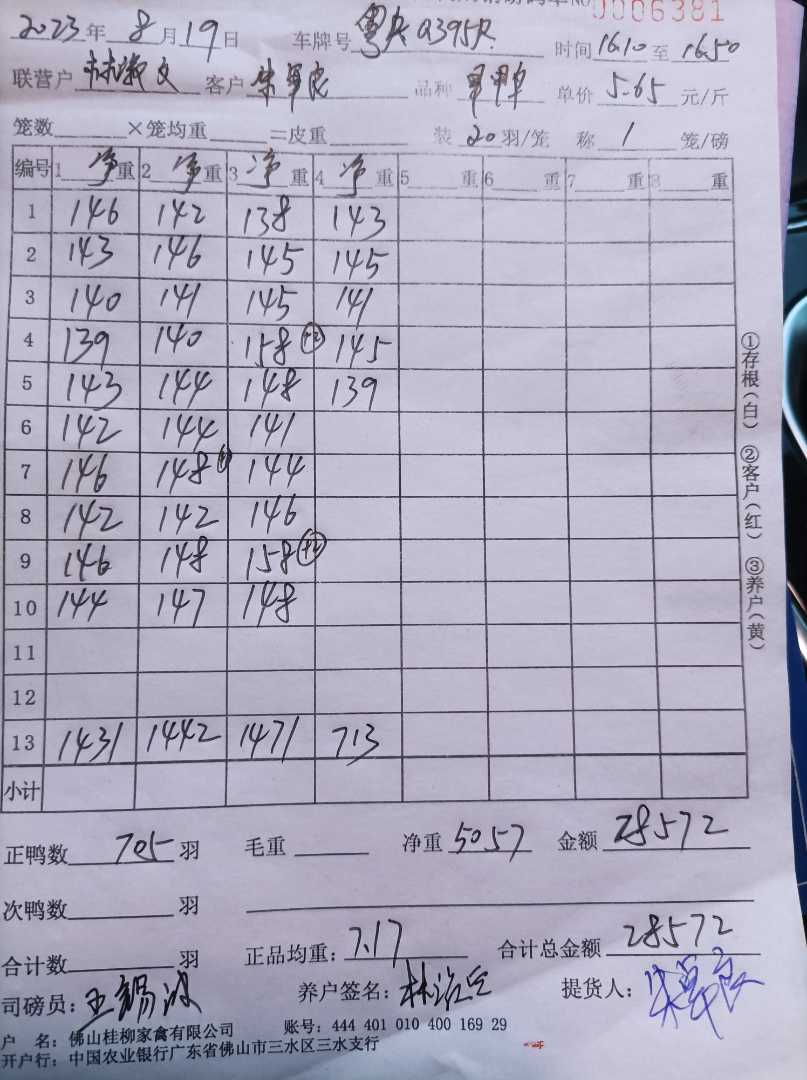 NO 0006381
2023年 8月19日 车牌号 时间 16.10 至 16.50
联营户 林淑文 客户 朱军良 品种 单价 5.65 元/斤
笼数 ×笼均重 =皮重 装 20 羽/笼 称 1 笼/磅
编号 1 净 重 2 净 重 3 净 重 4 净 重 5 重 6 重 7 重 8 重
1 146 142 138 143
2 143 146 145 145
3 140 141 145 141
4 139 140 158 +2 145
5 143 144 148 139
6 142 144 141
7 146 148 144
8 142 142 146
9 146 148 158
10 144 147 148
11
12
13 1431 1442 1471 713
小计
正鸭数 705 羽 毛重 净重 5057 金额 28572
次鸭数 羽
合计数 羽 正品均重: 7.17 合计总金额 28572
司磅员: 王锡波 养户签名: 提货人: 朱军良
户 名: 佛山桂柳家禽有限公司 账号: 444 401 010 400 169 29
开户行: 中国农业银行广东省佛山市三水区三水支行
①存根(白) ②客户(红) ③养户(黄)